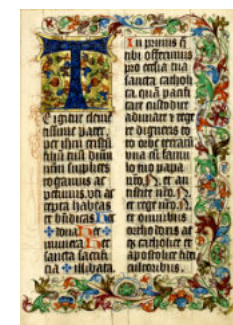 T
E igitur cleme
tissime pater.
per ihm cristu
filiu tuu dnm
nrm supplices
rogamus ac
petimus. vti ac
cepta habeas
et bndicas. hec
dona. hec
munera. hec
sancta sacrifi
cia illibata.
In primis q̄
tibi offerimus
pro ecclia tua
sancta catholi
ca. quā pacifi
care custodire
adunare et rege
re digneris to
to orbe terrarū
vna cū famu
lo tuo papa
nr̄o. N. et an
tistite nr̄o. N.
et rege nr̄o. N.
et omnibus
orthodoxis at
q̄ catholice et
apostolice fidei
cultoribus.